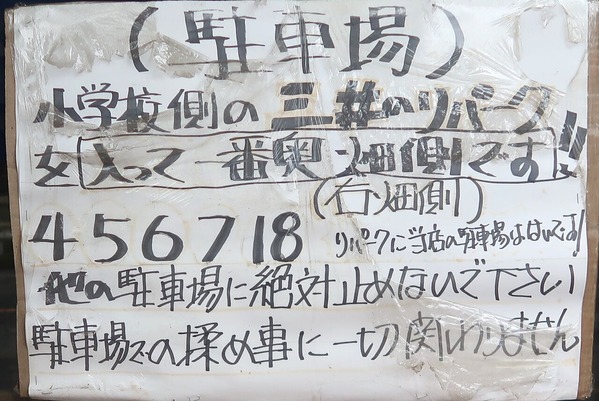 (駐車場)
小学校側の三井のリパーク
を入って一番奥畑側です!!
(右畑側)
4 5 6 7 18 リパークに当店の駐車場はないです!
他の駐車場に絶対止めないで下さい
駐車場での揉め事に一切関わりません